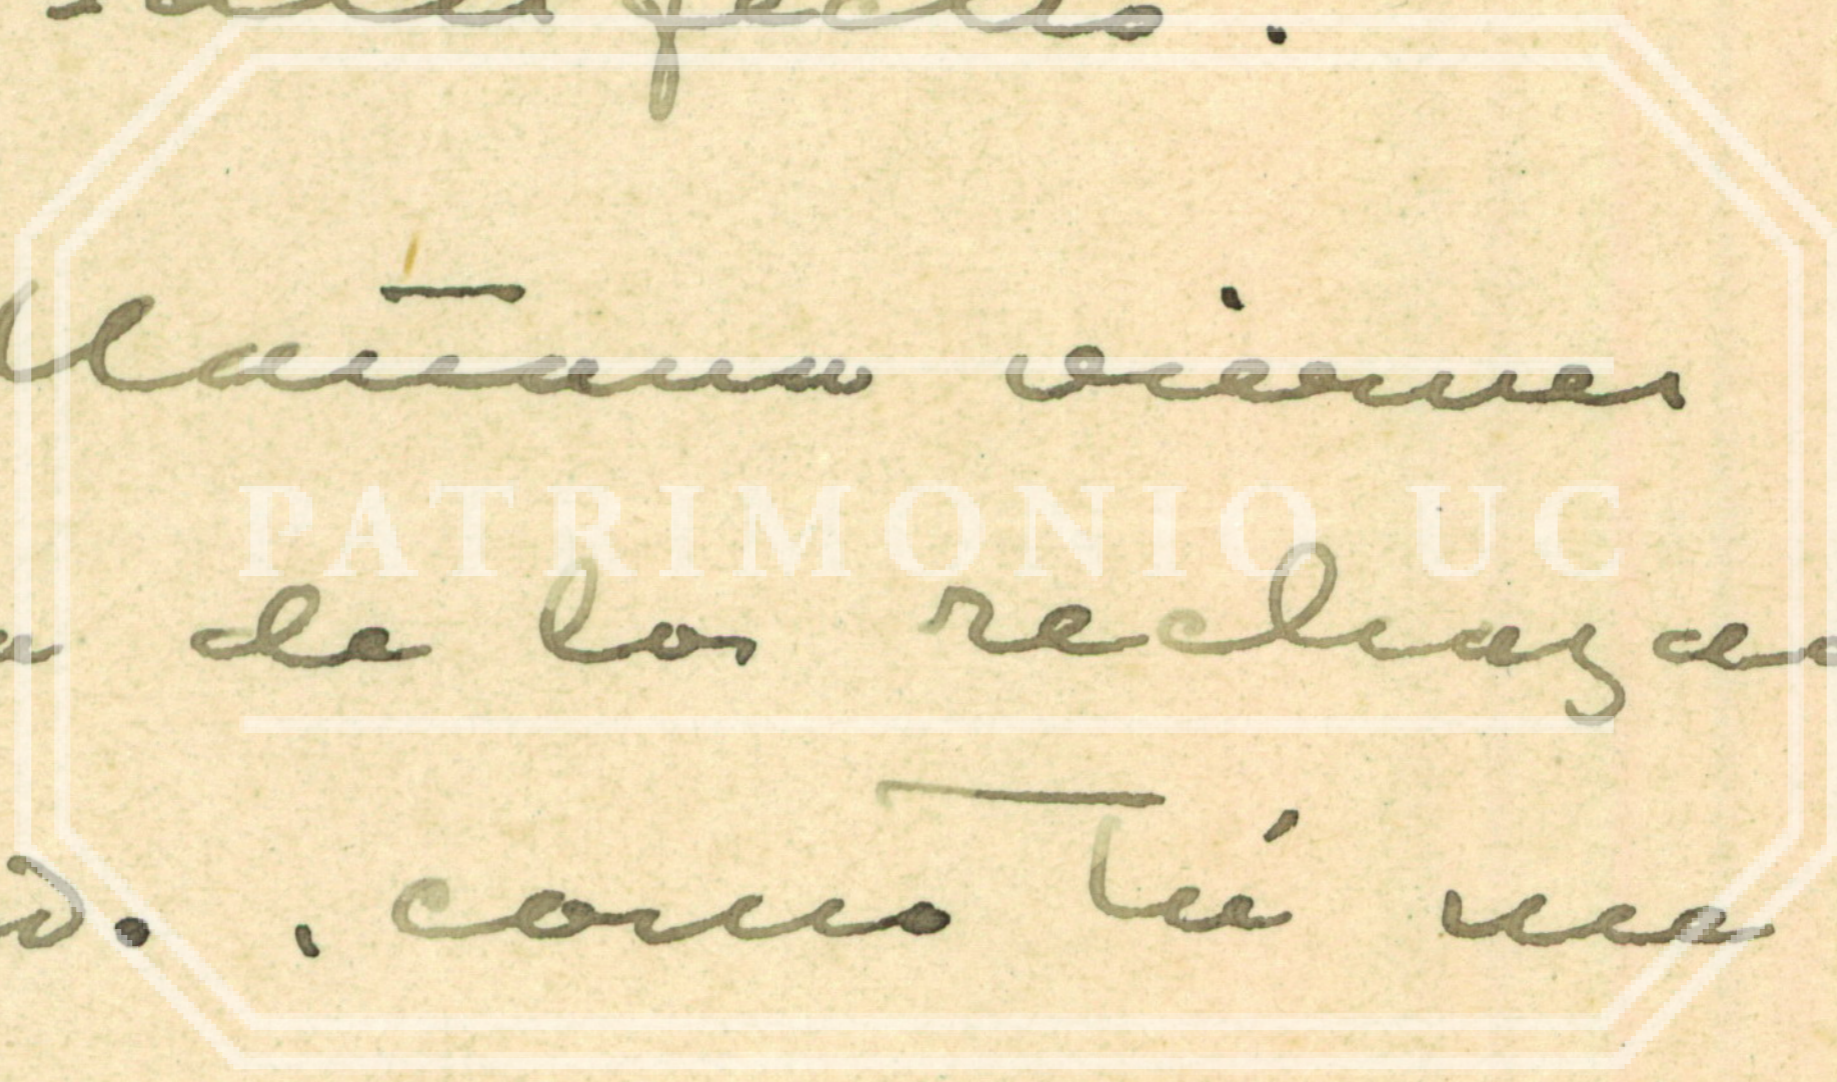 Mañana viernes
PATRIMONIO UC
de los
como tú me